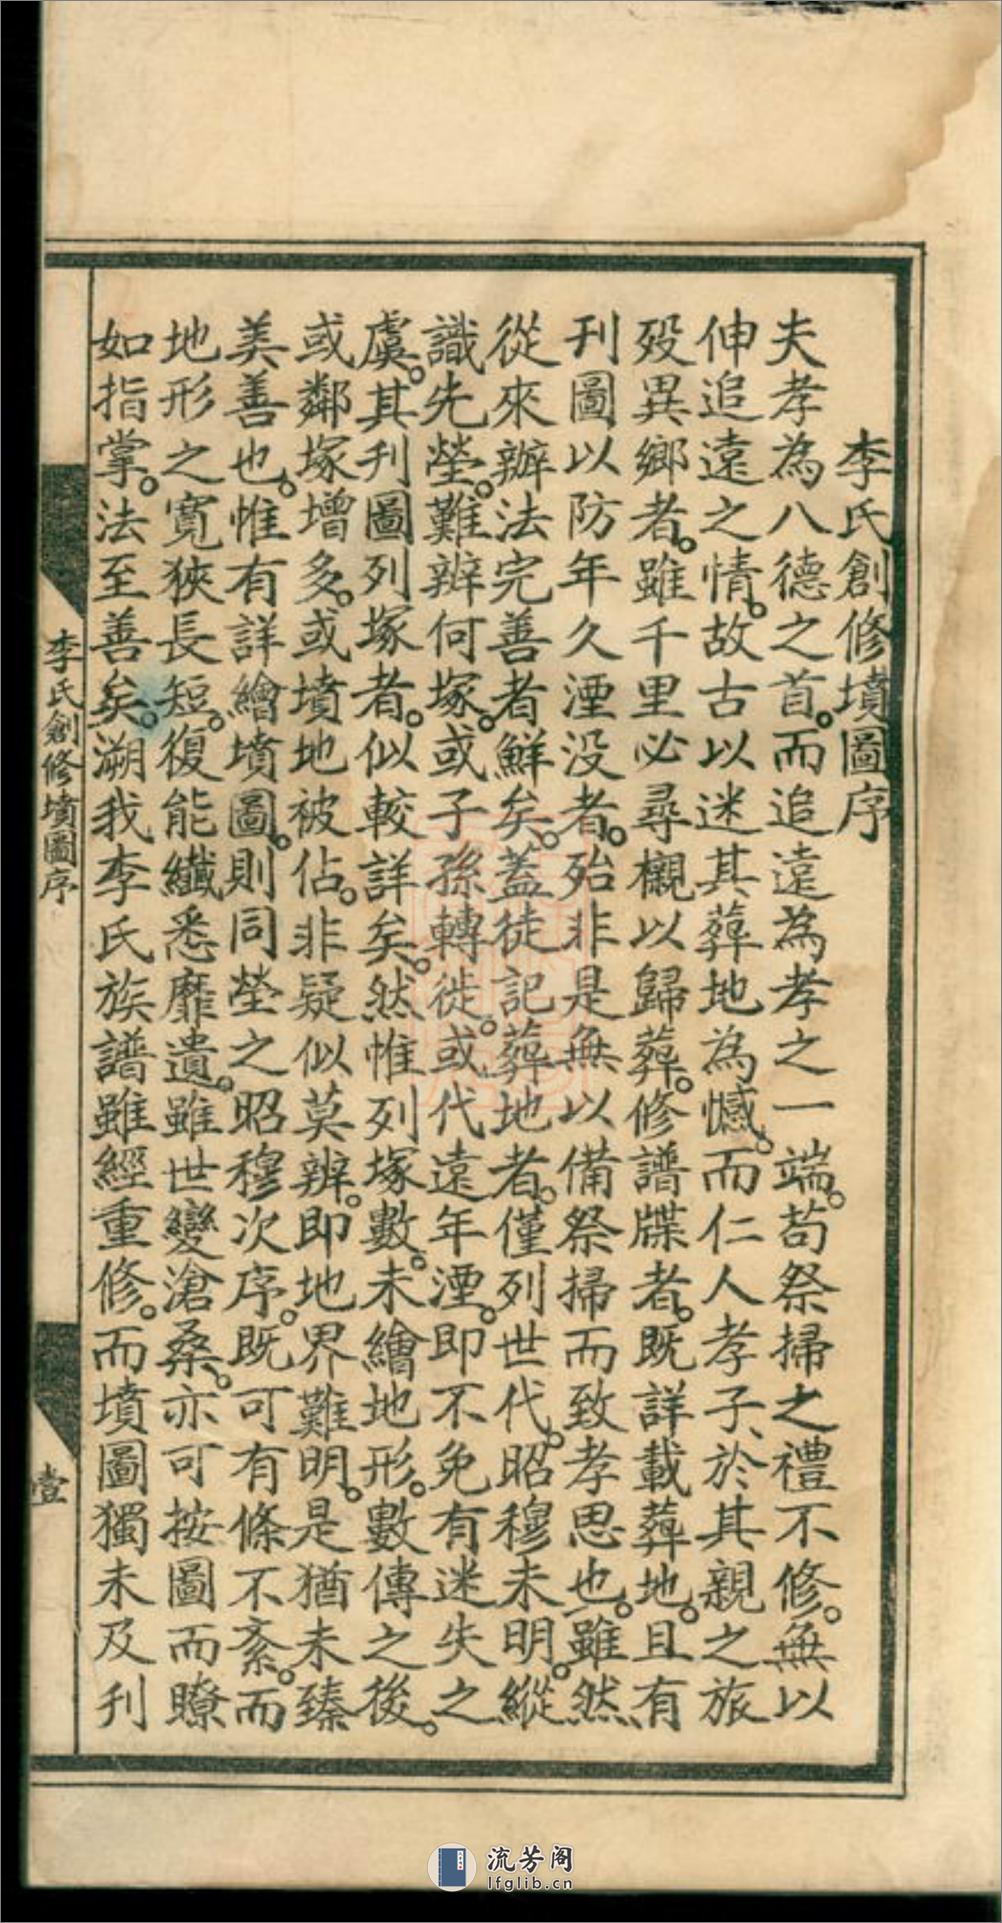 李氏創修墳圖序
夫孝為八德之首。而追遠為孝之一端。苟祭掃之禮不修。無以
伸追遠之情。故古以迷其葬地為憾。而仁人孝子、於其親之旅
歿異鄉者。雖千里必尋櫬以歸葬。修譜牒者。既詳載葬地。且有
刊圖以防年久湮没者。殆非是無以備祭掃而致孝思也。雖然
從來辦法完善者鮮矣。蓋徒記葬地者。僅列世代。昭穆未明。縱
識先塋。難辨何塚。或子孫轉徙。或代遠年湮。即不免有迷失之
虞。其刊圖列塚者。似較詳矣。然惟列塚數。未繪地形。數傳之後。
或鄰塚增多。或墳地被佔。非疑似莫辨。即地界難明。是猶未臻
美善也。惟有詳繪墳圖。則同塋之昭穆次序。既可有條不紊。而
地形之寬狹長短。復能纖悉靡遺。雖世變滄桑。亦可按圖而瞭
如指掌。法至善矣。溯我李氏族譜雖經重修。而墳圖獨未及刊
李氏創修墳圖序
壹
流芳阁
lfglib.cn